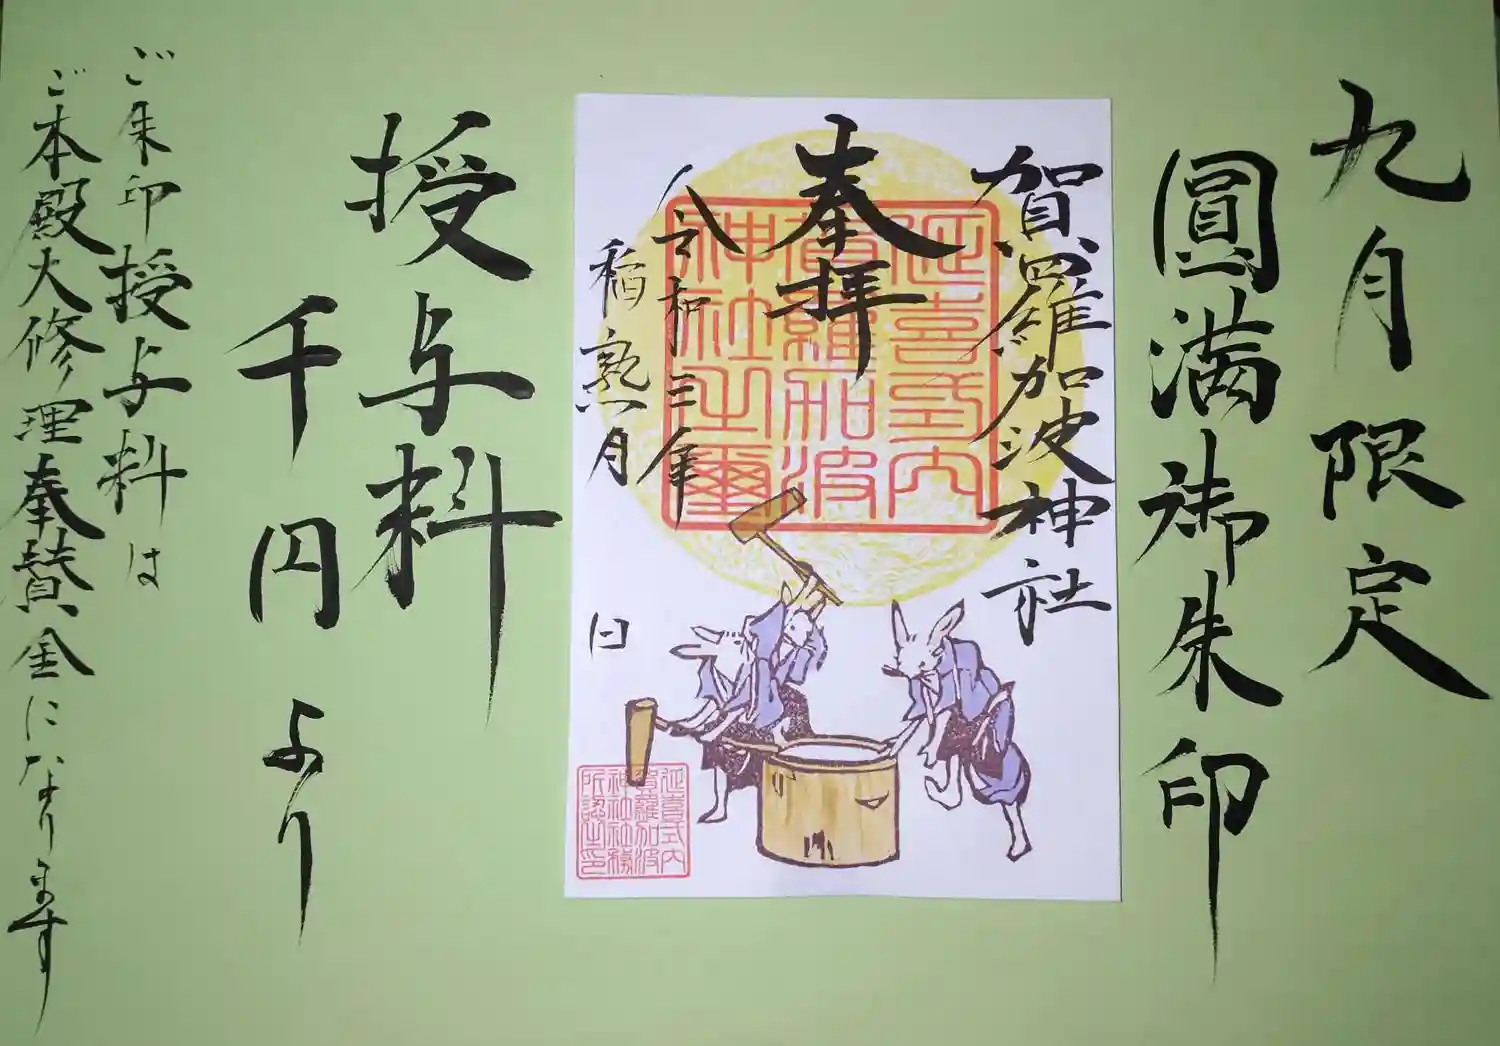 九月限定
圓満御朱印
賀羅加波神社
奉拝
令和三年
稲熟月
日
延喜式内
賀羅加波
神社之璽
延喜式内
賀羅加波
神社社務
所認之印
授与料
千円より
ご朱印授与料は
ご本殿大修理奉賛金になります